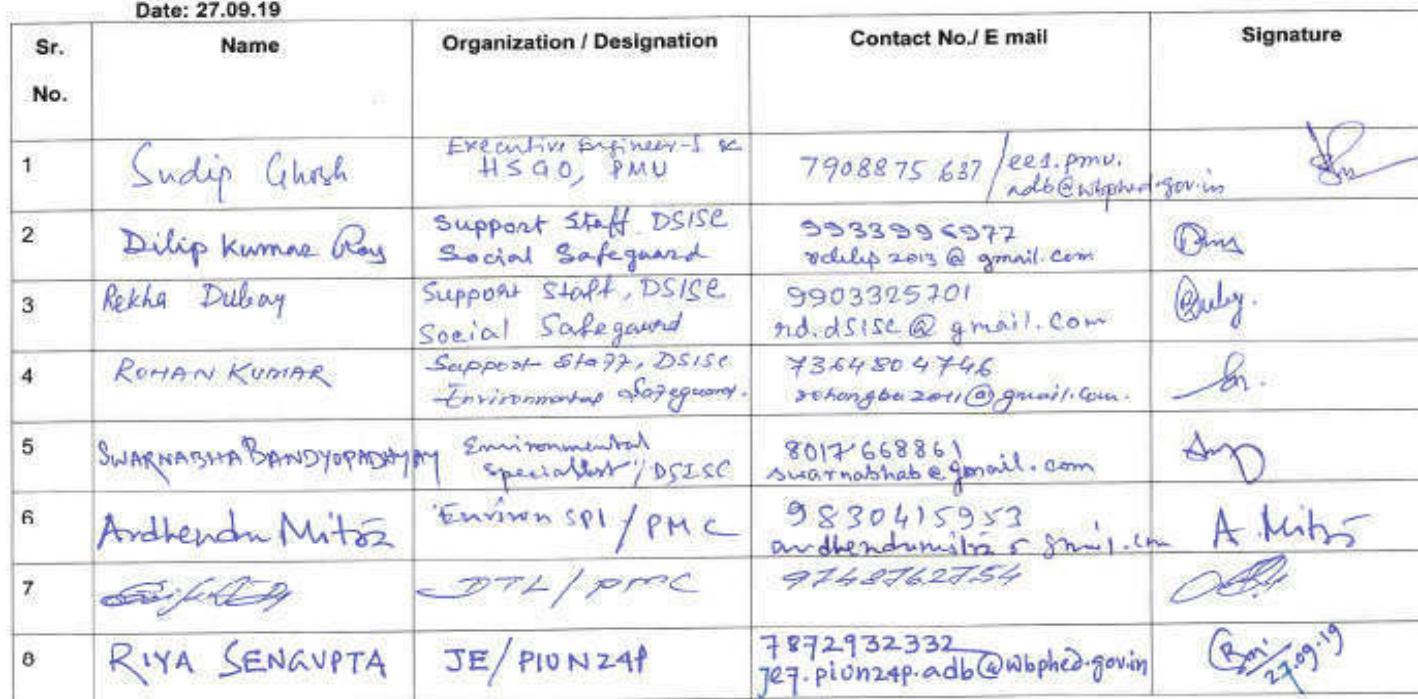 Date: 27.09.19
Sr. No. Name Organization / Designation Contact No./ E mail Signature
1 Sudip Ghosh Executive Engineer-I & HSGO, PMU 7908875637/ee1.pmu.adb@wbphed.gov.in
2 Dilip Kumar Roy Support Staff DSISC Social Safeguard 9933996977 rdilip2013@gmail.com
3 Rekha Dubay Support Staff, DSISC Social Safegaurd 9903325701 rd.dsisc@gmail.com
4 ROHAN KUMAR Support Staff, DSISC Environmental Safeguard. 7364804746
5 SWARNABHA BANDYOPADHYAY Environmental Specialist/DSISC 8017668861 swarnabhab@gmail.com
6 Ardhendu Mitra Environ SPl / PMC 9830415953 A. Mitra
7 DTL/PMC 9748762754
8 RIYA SENGUPTA JE/PIUN24P 7872932332 je7.piun24p.adb@wbphed.gov.in 27.09.19